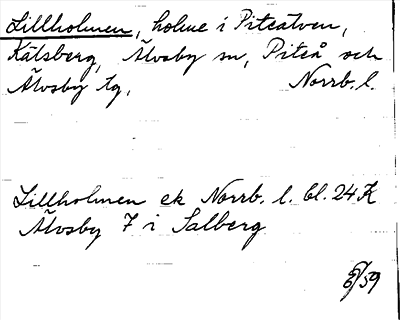 Lillholmen, holme i Piteälven,
Kälsberg, Älvsby sn, Piteå och
Älvsby tg, Norrb. l.
Lillholmen ek Norrb. l. bl. 24 K
Älvsby 7 i Salberg
/59